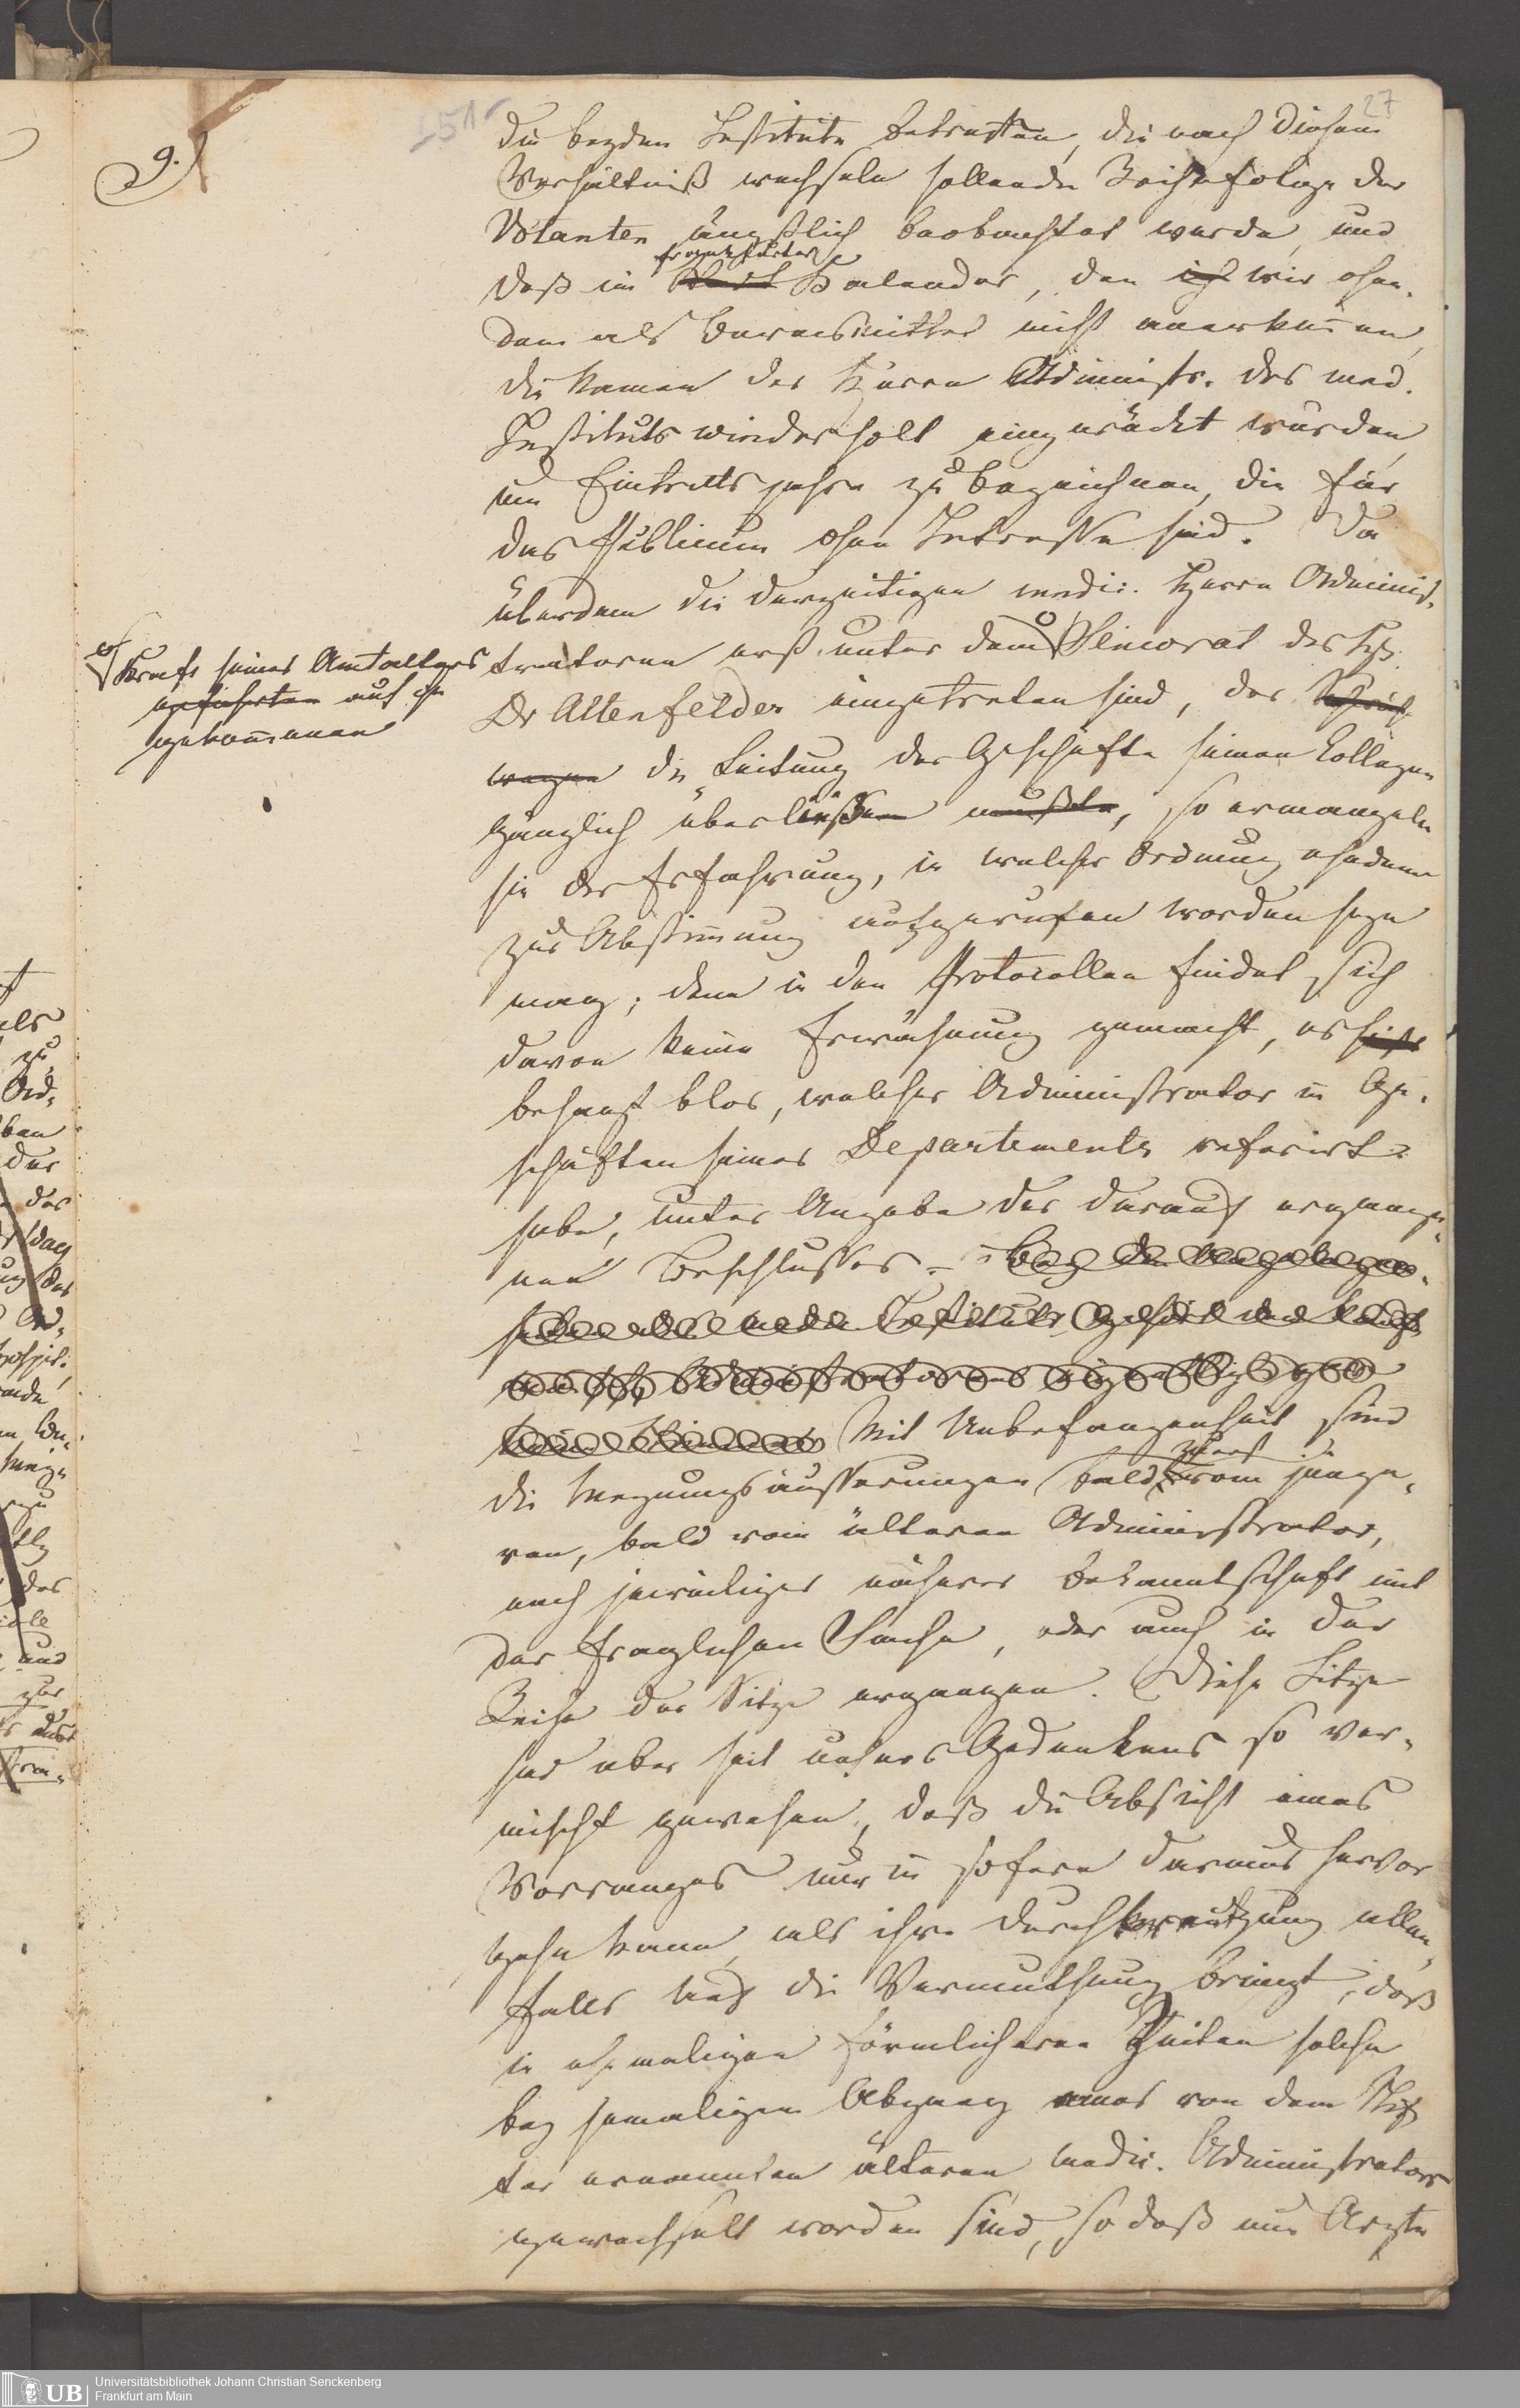 27
9.
51
die beyden Institute betretten, die nach diesem
Verhältniß wechseln sollende Reihefolge der
Votanten ängstlich beobachtet werde, und
frankfurter
daß im Kalender, den ich wir ohne,
dem als Beweismittel nicht anerkennen,
die Namen der Herrn Administr. des med.
Instituts wiederholt eingerückt wurden,
um Eintrittsjahre zu bezeichnen, die für
das Publicum ohne Interesse sind. Da
überdem die derzeitigen medic. Herrn Adminis-
tratoren erst unter dem Seniorat des H
kraft seines Amtalters
geführten auf ihn
gekommenen
Dr Altenfelder eingetreten sind, der
wegen die Leitung der Geschäfte seinen Collegen
gänzlich überließ mußte, so ermangeln
sie der Erfahrung, in welcher Ordnung ehedem
zur Abstimmung aufgerufen worden seyn
mag; denn in den Protocollen findet sich
davon keine Erwähnung gemacht, es
besagt blos, welcher Administrator in Ge-
schäften seines Departements referirt
habe, unter Angabe des darauf ergange-
nen Beschlusses –
Instituts
Administratoren
Mit Unbefangenheit sind
zuerst
die Meynungsäusserungen bald vom jünge-
ren, bald vom älteren Administrator,
nach jeweiliger näherer Bekanntschaft mit
der fraglichen Sache, oder auch in der
Reihe der Sitze ergangen. Diese Sitze
sind aber seit unsers Gedenkens so ver-
mischt gewesen, daß die Absicht eines
Vorranges nur in sofern daraus hervor
gehn kann, als ihre Durchkreutzung allen-
falls auf die Vermuthung bringt, daß
in ehemaligen förmlicheren Zeiten solche
bey jemaligem Abgang eines von dem Stif
ter ernannten älteren medic. Administrators
gewechselt worden sind, so daß nun Aerzte
UB
Universitätsbibliothek Johann Christian Senckenberg
Frankfurt am Main